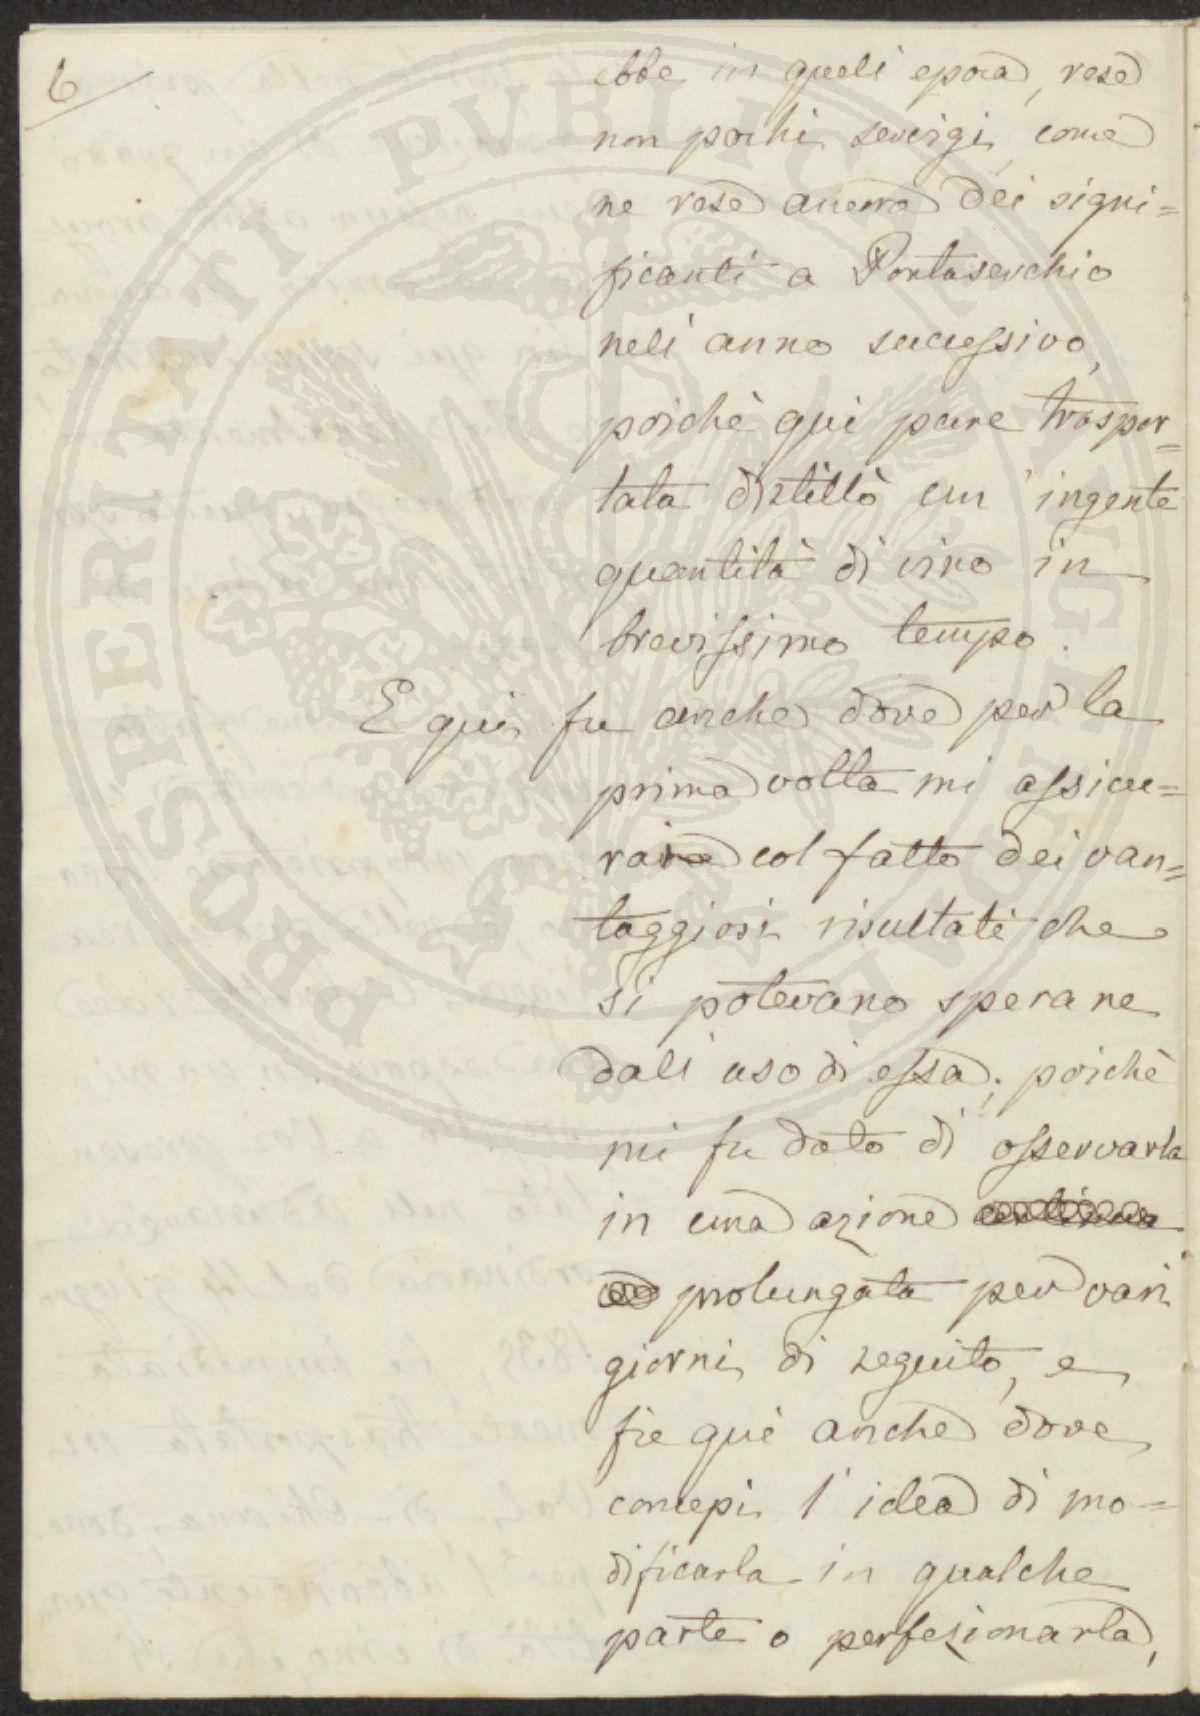 6
ebbe in quell' epoca, rese
non pochi servigi, come
ne rese ancora dei signi=
ficanti a Pontaserchio
nell' anno successivo,
poichè qui pure traspor=
tata distillò un' ingente
quantità di vino in
brevissimo tempo.
E qui fu anche dove per la
prima volta mi assicu=
rai col fatto dei van=
taggiosi risultati che
si potevano sperare
dall' uso di essa; poichè
mi fu dato di osservarla
in una azione
prolungata per vari
giorni di seguito, e
fu qui anche dove
concepii l' idea di mo=
dificarla in qualche
parte o perfezionarla,
PROSPERITATI PVBLICAE